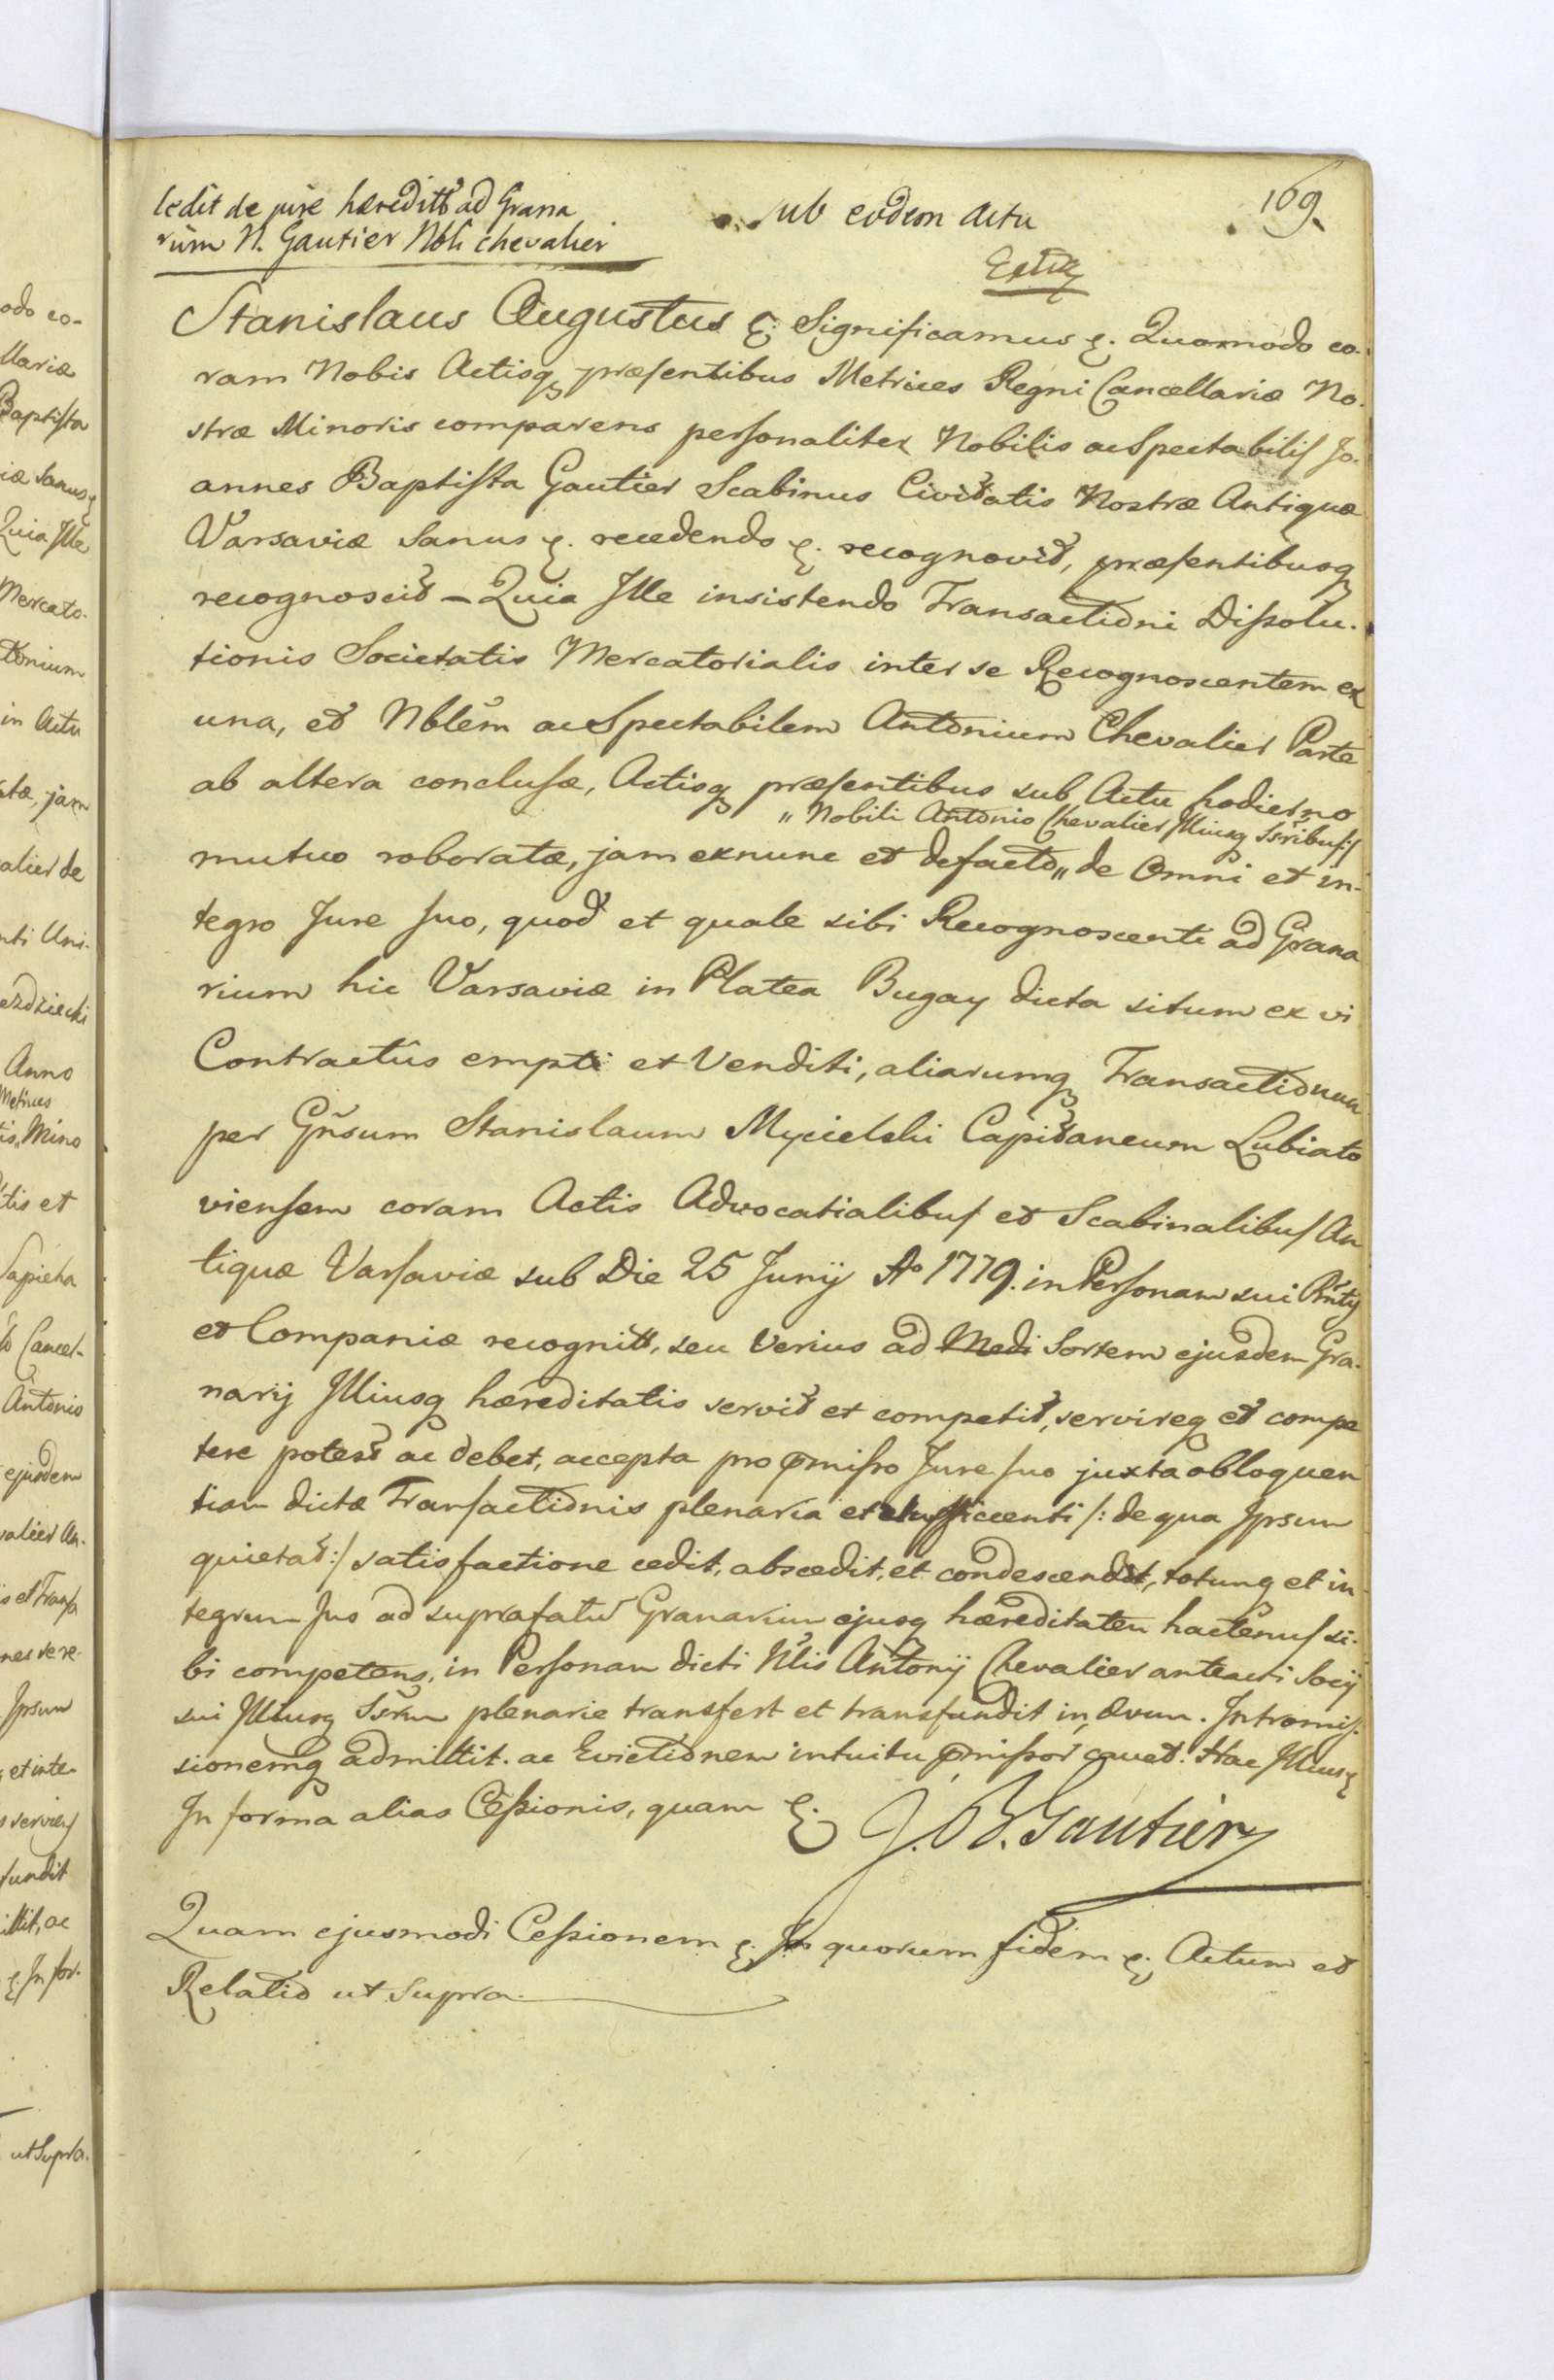 Cedit de jure hæreditt ad Grana
rium N. Gautier Nbli chevalier
Sub eodem Actu
169.
Stanislaus Augustus &. Significamus &. Quomodo co-
ram Nobis Actisq præsentibus Metrices Regni Cancellariæ No-
stræ Minoris comparens personaliter Nobilis ac Spectabilis Jo-
annes Baptista Gautier Scabinus Civitatis Nostræ Antiquæ
Varsaviæ Sanus &. recedendo &. recognovit, præsentibusq
recognoscit – Quia Ille insistendo Transactioni Dissolu-
tionis Societatis Mercatorialis inter se Recognoscentem ex
una, et Nblem ac Spectabilem Antonium Chevalier Parte
ab altera conclusæ, Actisq præsentibus sub Actu hodierno
" Nobili Antonio Chevalier Illiusq Ssribus :/
mutuo roboratæ, jam exnunc et defacto " de Omni et in-
tegro Jure suo, quod et quale sibi Recognoscenti ad Grana
rium hic Varsaviæ in Platea Bugay dicta situm ex vi
Contractûs empti et Venditi, aliarumq Transactionum
per Gnsum Stanislaum Mycielski Capitaneum Lubiato
viensem coram Actis Advocatialibus et Scabinalibus An
tiquæ Varsaviæ sub Die 25 Junij Ao 1779. in Personam sui Rñtis
et Companiæ recognitt, seu verius ad Medi Sortem ejusdem Gra-
narij Illiusq hæreditatis servit et competit, servireq et compe
tere potest ac debet, accepta pro pmisso Jure suo juxta obloquen
tiam dictæ Transactionis plenaria et sufficienti /: de qua Ipsum
quietat :/ satisfactione cedit, abscedit, et condescendit, totumq et in
tegrum Jus ad suprafatum Granarium ejusq hæreditatem hactenus si-
bi competens, in Personam dicti Nlis Antonij Chevalier anteacti Socij
sui Illiusq Ssrum plenarie transfert et transfundit in ævum. Intromis-
sionemq admittit. ac Evictionem intuitu pmissor cavet. Hac Illiusq
In forma alias Cessionis, quam &.
J. B. Gautier
Quam ejusmodi Cessionem &. In quorum fidem &. Actum et
Relatio ut Supra.
odo co-
llariæ
Baptista
iæ Sanus &
Quia Ille
Mercato-
tonium
in Actu
atæ, jam
alier de
nti Uni-
ezdziecki
Anno
Metrices
is, Mino
tis et
Sapieha
Cancel-
Antonio
ejusdem
valier An-
is et Transa
nes sere-
Ipsum
et inte-
serviens
fundit
ittit, ac
&. In for-
ut Supra.